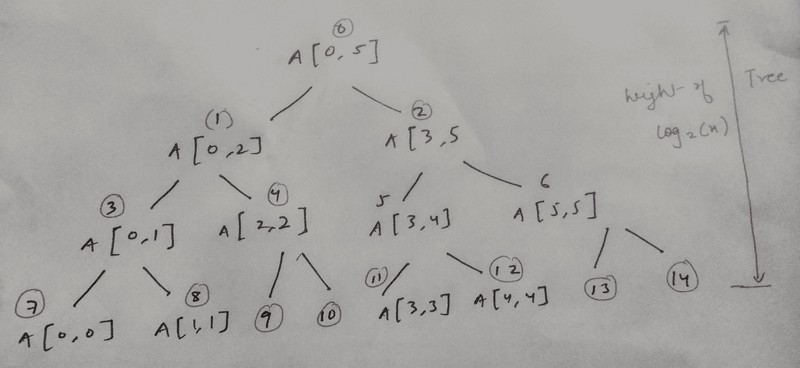 0
A[0,5]
(1)
A[0,2]
2
A[3,5
3
A[0,1]
4
A[2,2]
5
A[3,4]
6
A[5,5]
7
A[0,0]
8
A[1,1]
9
10
11
A[3,3]
12
A[4,4]
13
14
hight of
Tree
log₂(n)